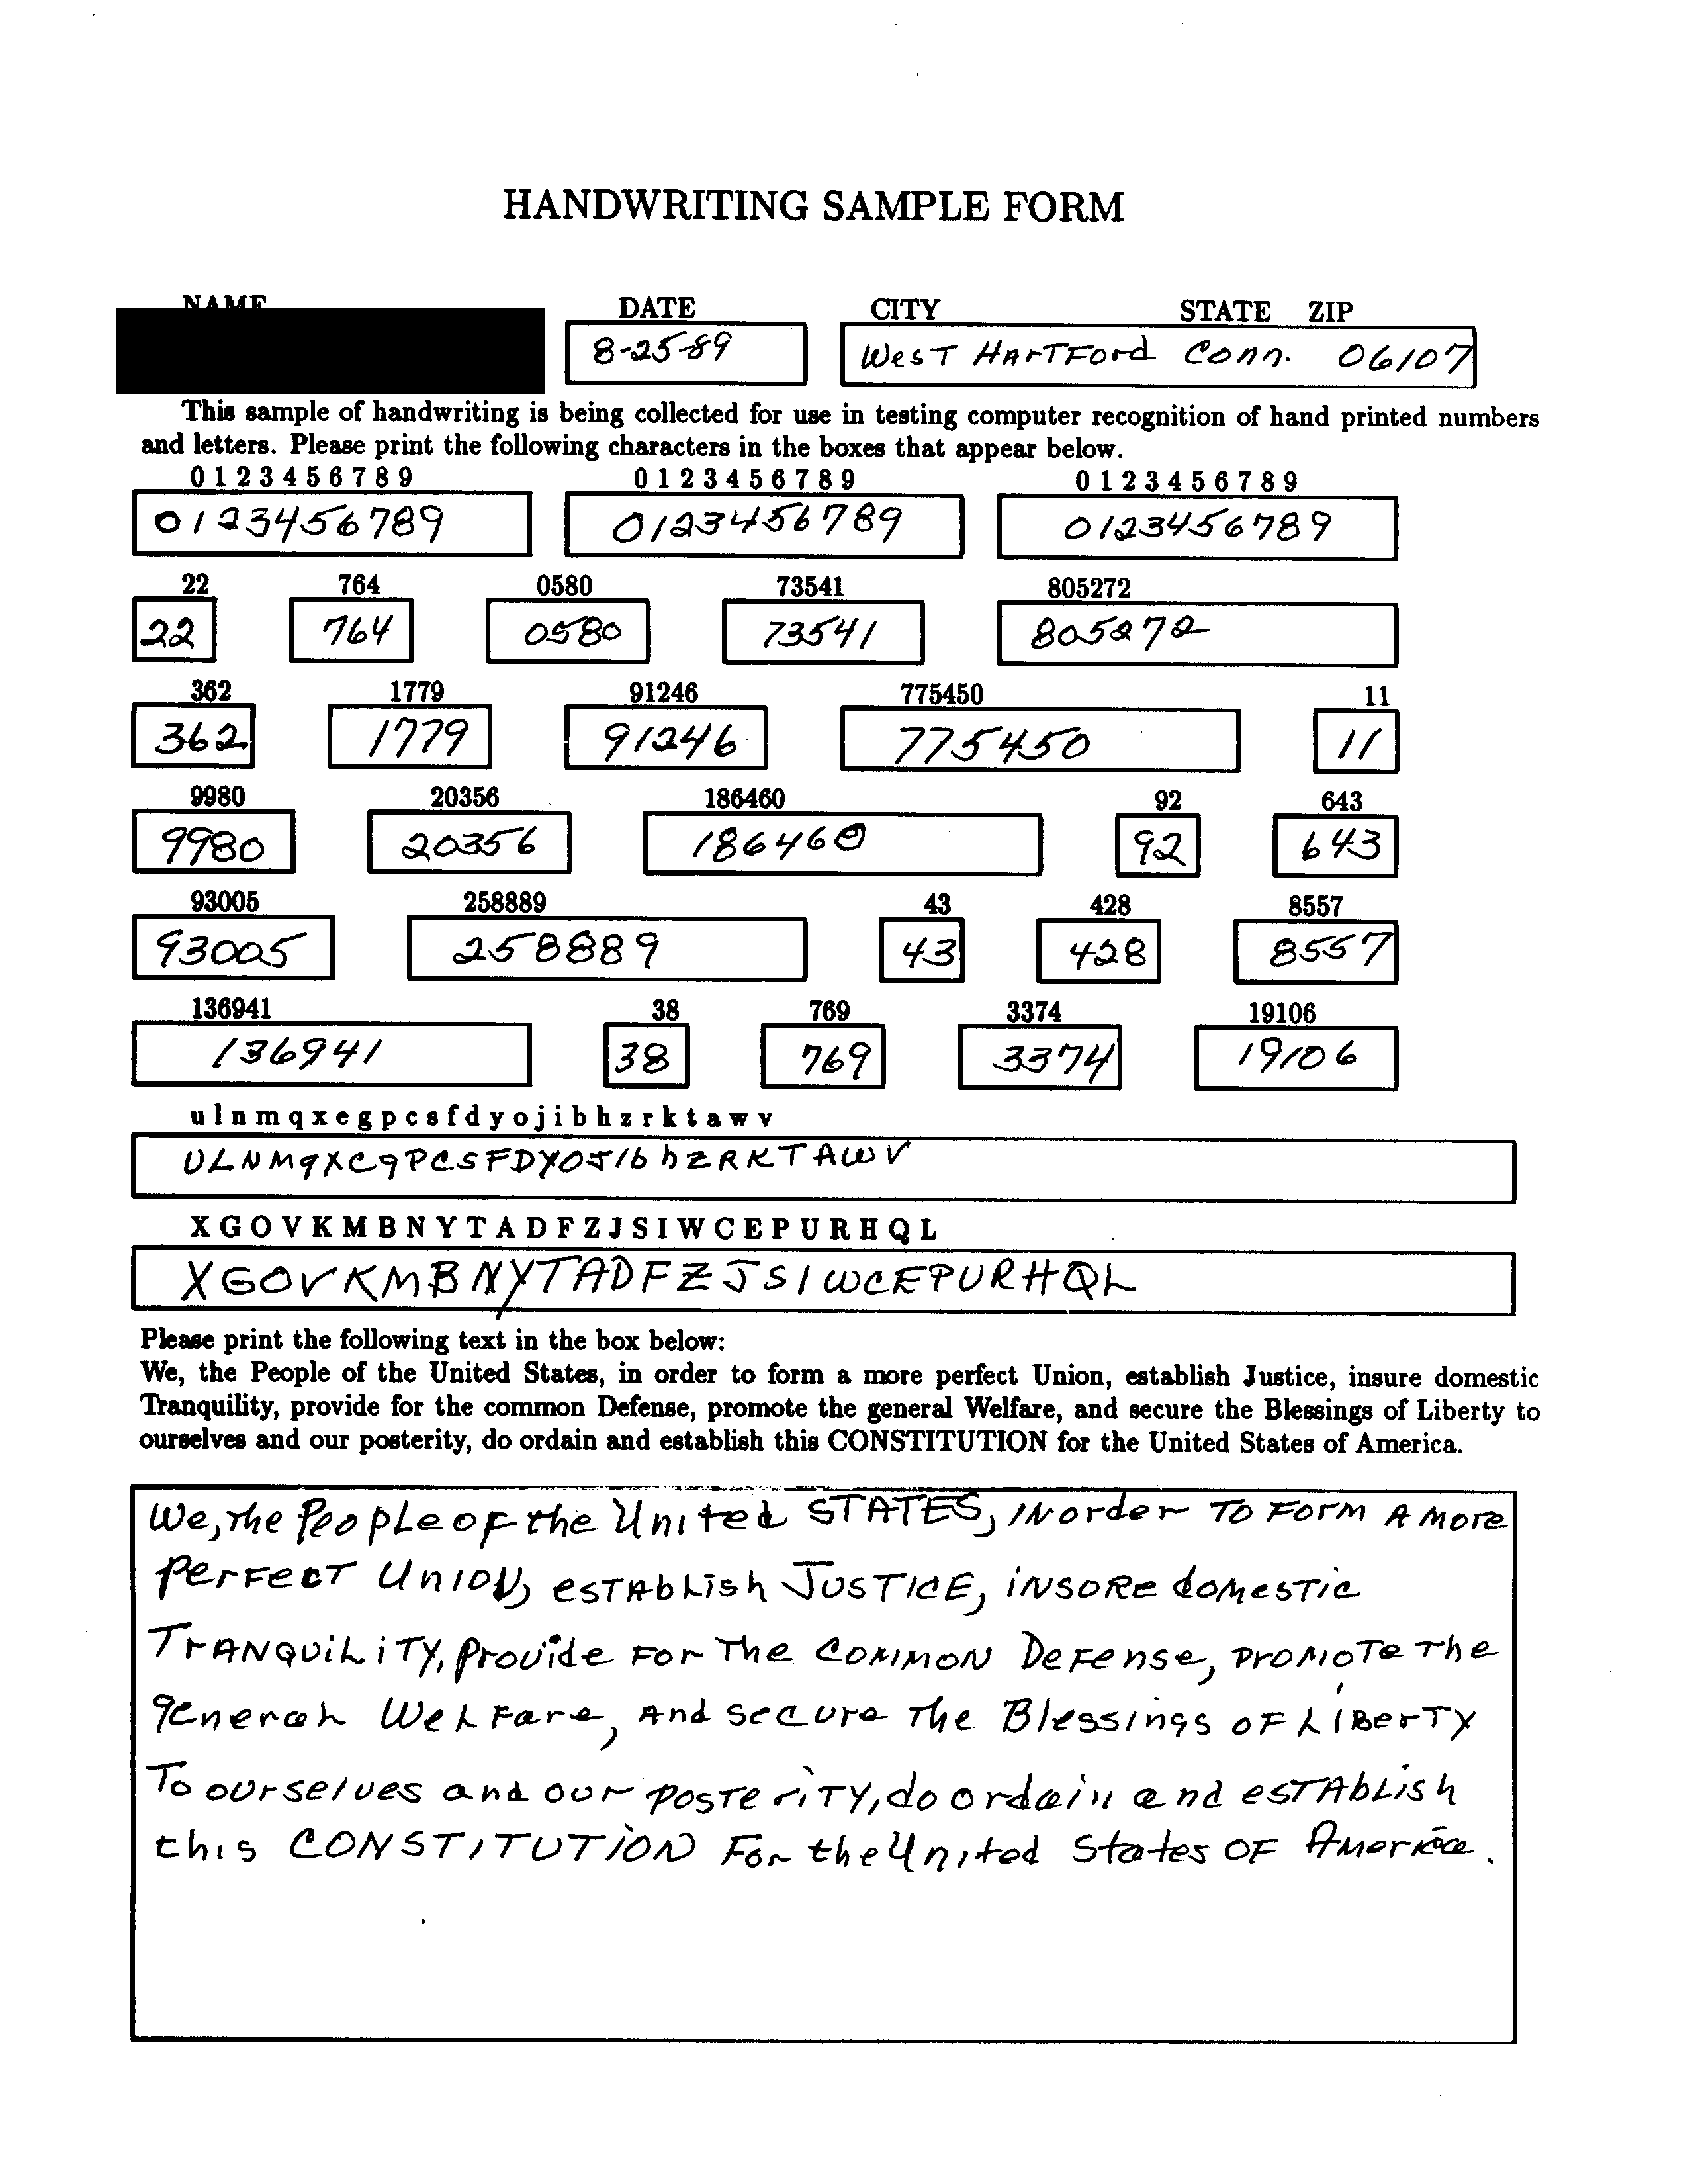 HANDWRITING SAMPLE FORM
NAME DATE CITY STATE ZIP
8-25-89 WesT HArTFord Conn. 06107
This sample of handwriting is being collected for use in testing computer recognition of hand printed numbers
and letters. Please print the following characters in the boxes that appear below.
0 1 2 3 4 5 6 7 8 9 0 1 2 3 4 5 6 7 8 9 0 1 2 3 4 5 6 7 8 9
0123456789 0123456789 0123456789
22 764 0580 73541 805272
22 764 0580 73541 805272
362 1779 91246 775450 11
362 1779 91246 775450 11
9980 20356 186460 92 643
9980 20356 186460 92 643
93005 258889 43 428 8557
93005 258889 43 428 8557
136941 38 769 3374 19106
136941 38 769 3374 19106
u l n m q x e g p c s f d y o j i b h z r k t a w v
ULNMqXegPCSFDYOJIbhZRKTAWV
X G O V K M B N Y T A D F Z J S I W C E P U R H Q L
XGOVKMBNYTADFZJSIWCEPURHQL
Please print the following text in the box below:
We, the People of the United States, in order to form a more perfect Union, establish Justice, insure domestic
Tranquility, provide for the common Defense, promote the general Welfare, and secure the Blessings of Liberty to
ourselves and our posterity, do ordain and establish this CONSTITUTION for the United States of America.
We, The PeopLe oF the United STATES, IN order To Form A More
PerFecT UnION, esTAbLish JUSTICE, iNSORe domesTic
TrANQUiLiTY, Provide For The COMMON DeFense, PROMOTe The
generaL WeLFare, And secure The Blessings oF LIBerTY
To ourselves and our POSTeriTY, do ordain and esTAbLish
this CONSTITUTiON For the United States OF America.